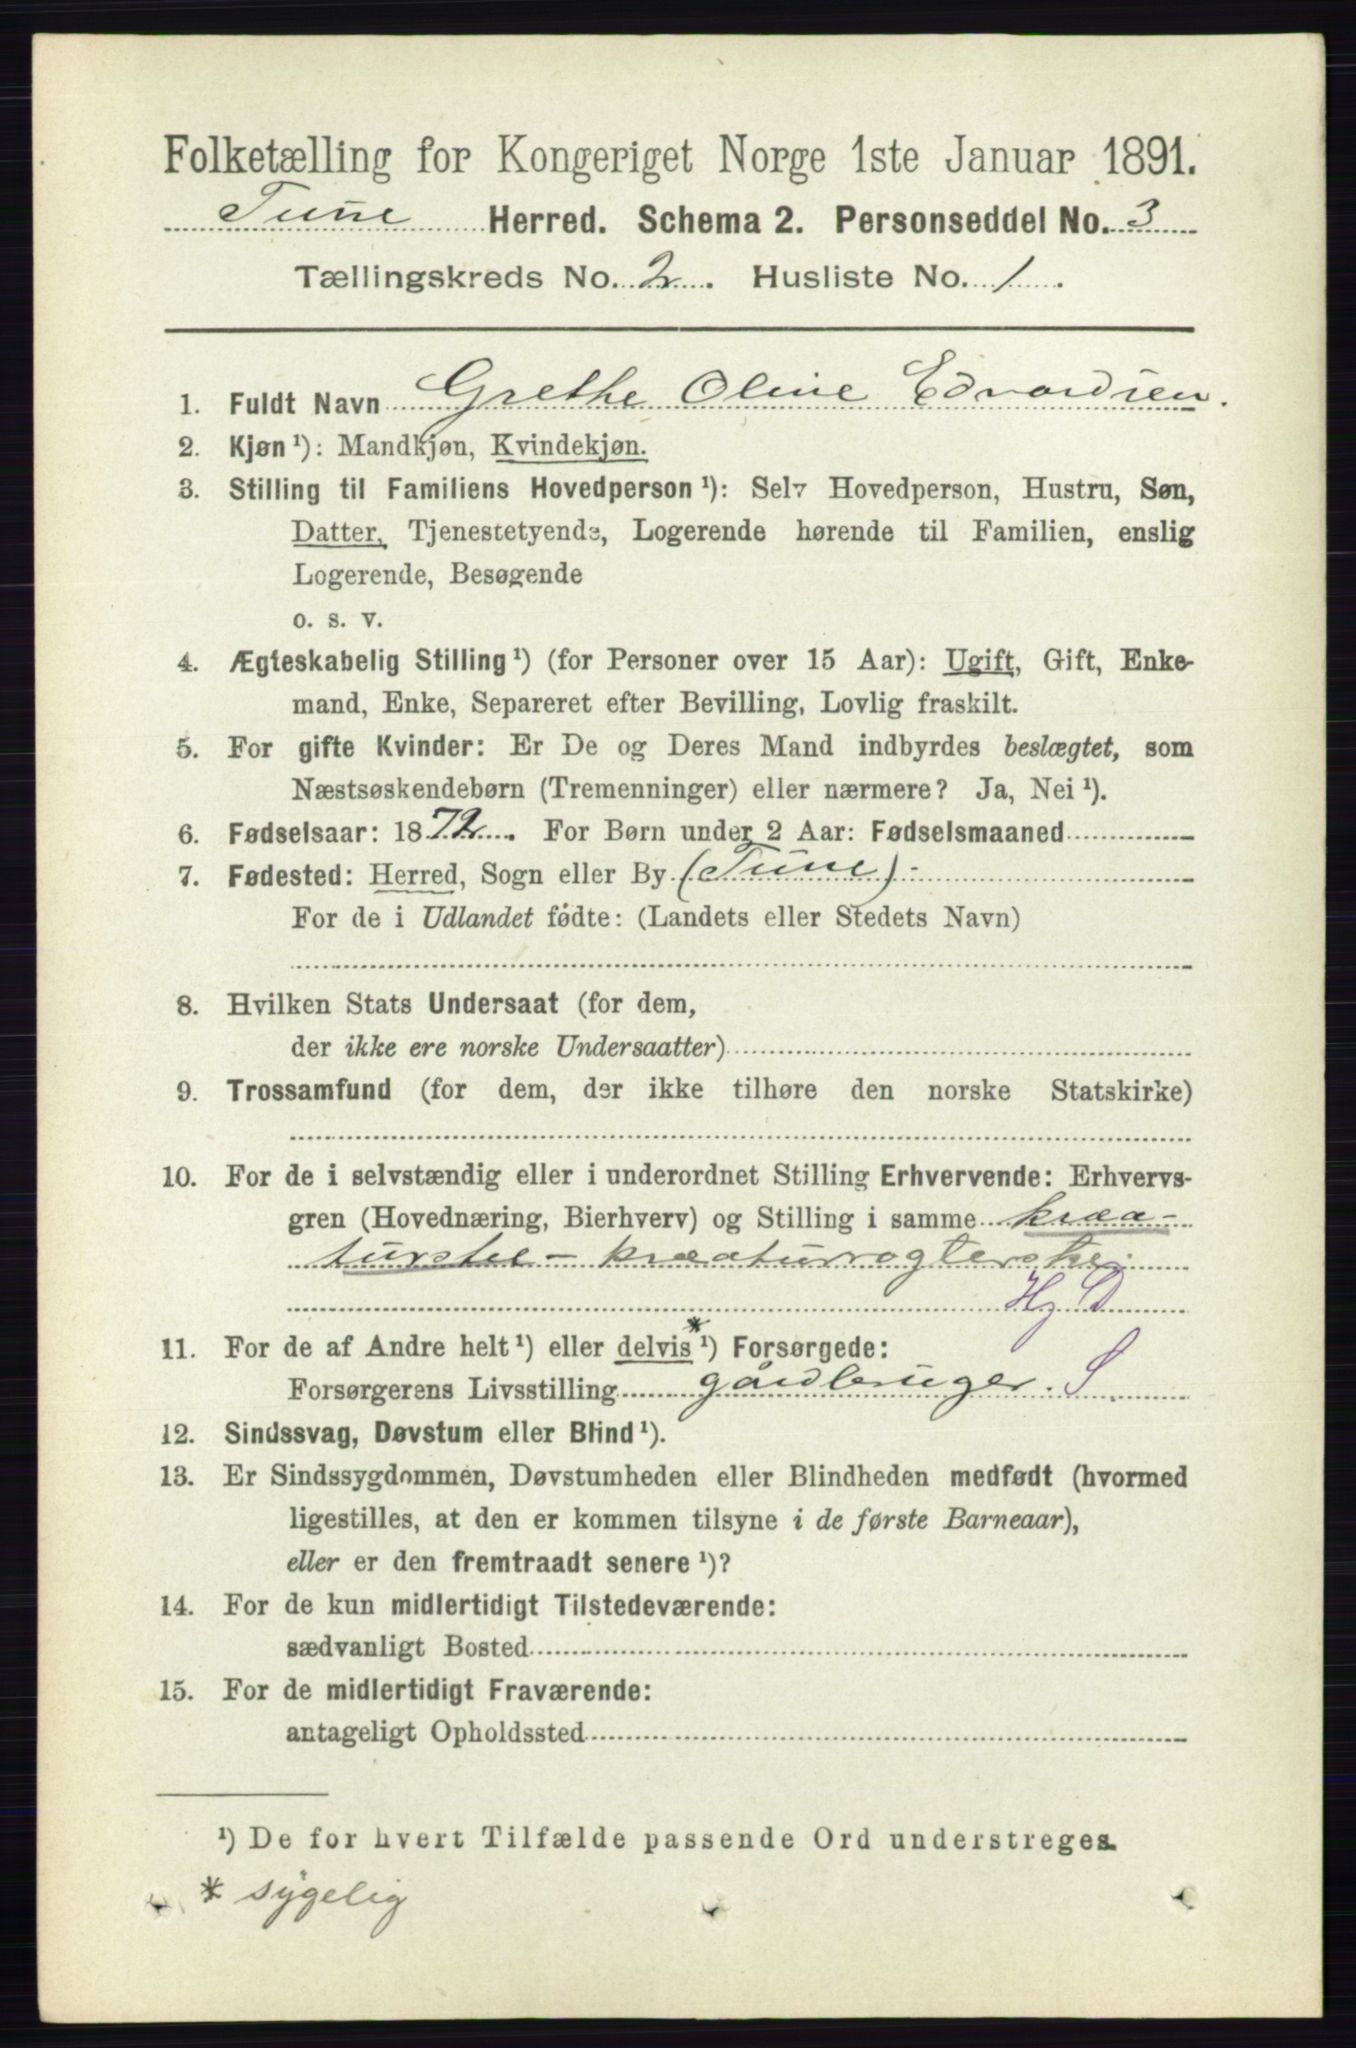 Folketælling for Kongeriget Norge 1ste Januar 1891.
Tune Herred. Schema 2. Personseddel No. 3
Tællingskreds No. 2. Husliste No. 1.
1. Fuldt Navn Grethe Oline Edvardsen.
2. Kjøn ¹): Mandkjøn, Kvindekjøn.
3. Stilling til Familiens Hovedperson ¹): Selv Hovedperson, Hustru, Søn,
Datter, Tjenestetyende, Logerende hørende til Familien, enslig
Logerende, Besøgende
o. s. v.
4. Ægteskabelig Stilling ¹) (for Personer over 15 Aar): Ugift, Gift, Enke-
mand, Enke, Separeret efter Bevilling, Lovlig fraskilt.
5. For gifte Kvinder: Er De og Deres Mand indbyrdes beslægtet, som
Næstsøskendebørn (Tremenninger) eller nærmere? Ja, Nei ¹).
6. Fødselsaar: 1872. For Børn under 2 Aar: Fødselsmaaned
7. Fødested: Herred, Sogn eller By (Tune).
For de i Udlandet fødte: (Landets eller Stedets Navn)
8. Hvilken Stats Undersaat (for dem,
der ikke ere norske Undersaatter)
9. Trossamfund (for dem, der ikke tilhøre den norske Statskirke)
10. For de i selvstændig eller i underordnet Stilling Erhvervende: Erhvervs-
gren (Hovednæring, Bierhverv) og Stilling i samme kræa-
turstel - kræaturrøgterske.
Hj D
11. For de af Andre helt ¹) eller delvis * ¹) Forsørgede:
Forsørgerens Livsstilling gårdbruger. S
12. Sindssvag, Døvstum eller Blind ¹).
13. Er Sindssygdommen, Døvstumheden eller Blindheden medfødt (hvormed
ligestilles, at den er kommen tilsyne i de første Barneaar),
eller er den fremtraadt senere ¹)?
14. For de kun midlertidigt Tilstedeværende:
sædvanligt Bosted
15. For de midlertidigt Fraværende:
antageligt Opholdssted
¹) De for hvert Tilfælde passende Ord understreges.
* sygelig